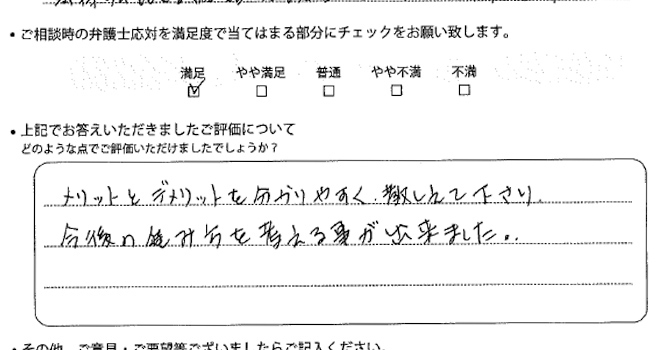 ・ご相談時の弁護士応対を満足度で当てはまる部分にチェックをお願い致します。
満足 やや満足 普通 やや不満 不満
☑ □ □ □ □
・上記でお答えいただきましたご評価について
どのような点でご評価いただけましたでしょうか？
メリットとデメリットを分かりやすく、教しえて下さり、
今後の進み方を考える事が出来ました。
・その他、ご意見・ご要望等ございましたらご記入ください。